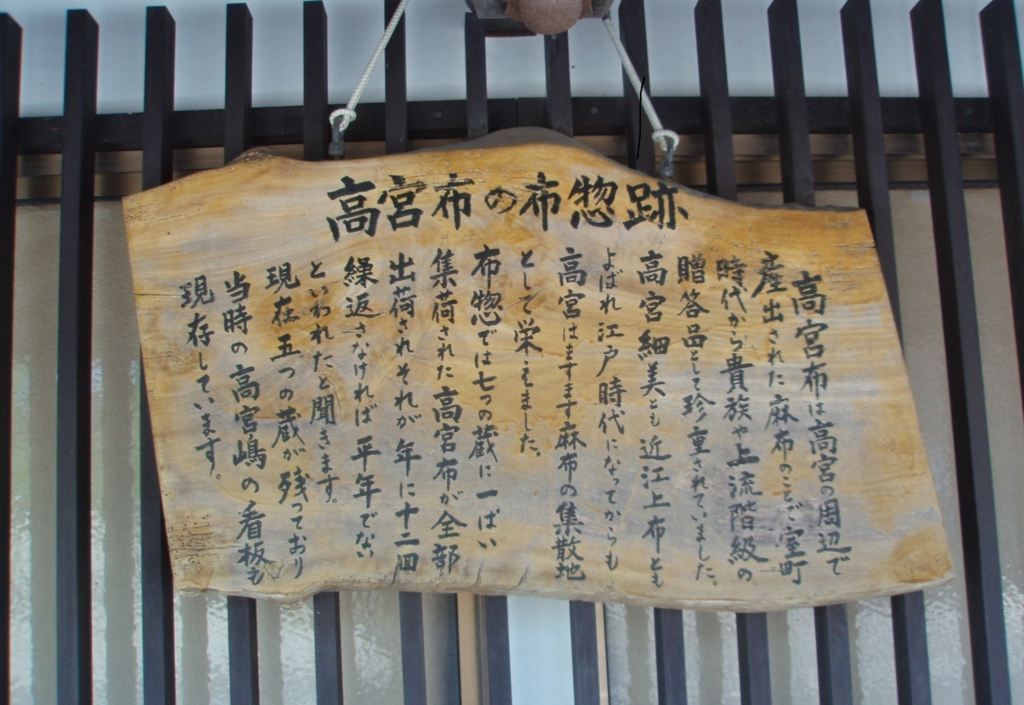 高宮布の布惣跡
高宮布は高宮の周辺で
産出された麻布のことで室町
時代から貴族や上流階級の
贈答品として珍重されていました。
高宮細美とも近江上布とも
よばれ江戸時代になってからも
高宮はますます麻布の集散地
として栄えました。
布惣では七つの蔵に一ぱい
集荷された高宮布が全部
出荷されそれが年に十二回
繰返さなければ平年でない
といわれたと聞きます。
現在五つの蔵が残っており
当時の高宮嶋の看板も
現存しています。